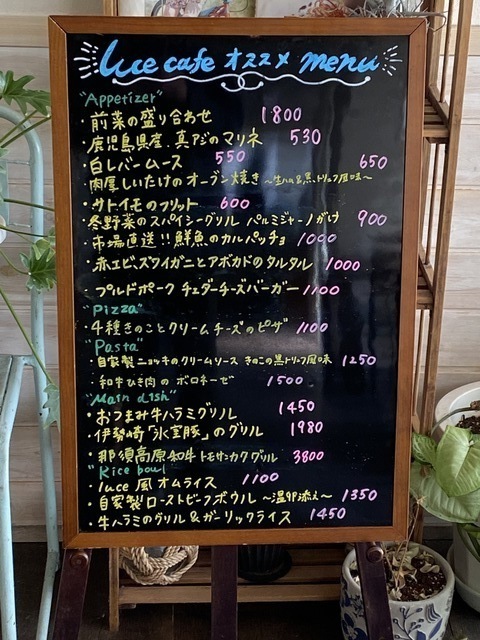 luce cafe オススメ menu
"Appetizer"
・前菜の盛り合わせ 1800
・鹿児島県産、真アジのマリネ 530
・白レバームース 550
・肉厚しいたけのオーブン焼き ～生ハム&黒トリュフ風味～ 650
・サトイモのフリット 600
・冬野菜のスパイシーグリル パルミジャーノがけ 900
・市場直送!!鮮魚のカルパッチョ 1000
・赤エビ、ズワイガニとアボカドのタルタル 1000
・プルドポーク チェダーチーズバーガー 1100
"Pizza"
・4種きのことクリームチーズのピザ 1100
"Pasta"
・自家製ニョッキのクリームソース きのこの黒トリュフ風味 1250
・和牛ひき肉のボロネーゼ 1500
"Main dish"
・おつまみ牛ハラミグリル 1450
・伊勢崎「氷室豚」のグリル 1980
・那須高原和牛トモサンカクグリル 3800
"Rice bowl"
・luce風オムライス 1100
・自家製ローストビーフボウル ～温卵添え～ 1350
・牛ハラミのグリル&ガーリックライス 1450